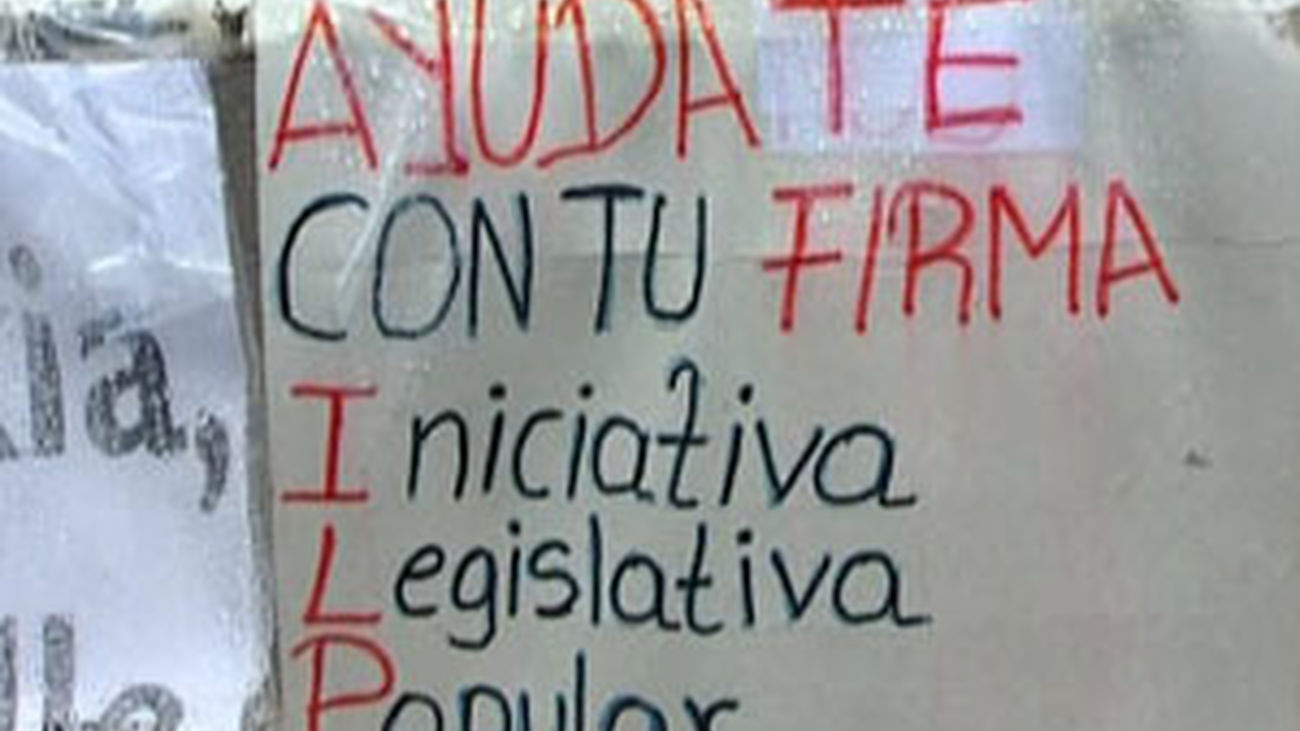 AYUDATE
CON TU FIRMA
Iniciativa
Legislativa
Popular
ia,